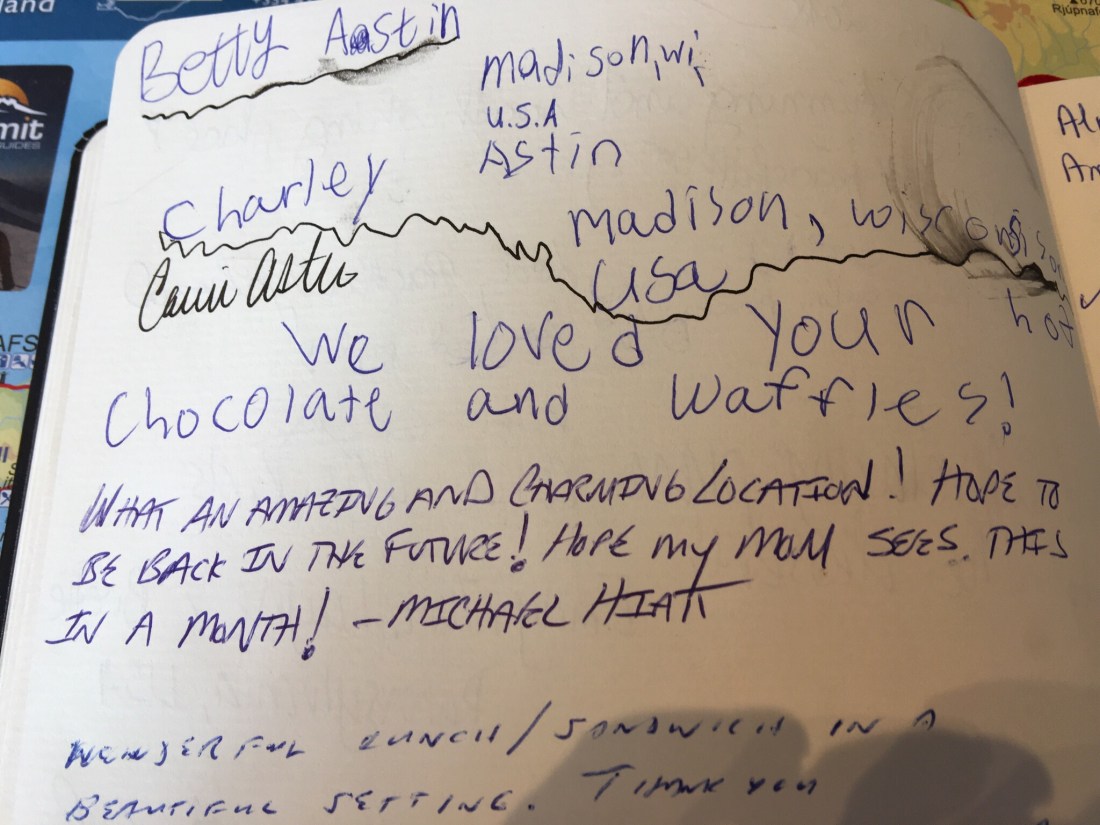 Betty Aastin
madison, wi
U.S.A
Astin
Charley
madison, wisconsin
usa
We loved your hot
Chocolate and waffles!
WHAT AN AMAZING AND CHARMING LOCATION! HOPE TO
BE BACK IN THE FUTURE! HOPE MY MOM SEES THIS
IN A MONTH! - MICHAEL HIATT
WONDERFUL LUNCH / SANDWICH IN A
BEAUTIFUL SETTING. THANK YOU
mit
GUIDES
land
AFS
Rjúpnaf